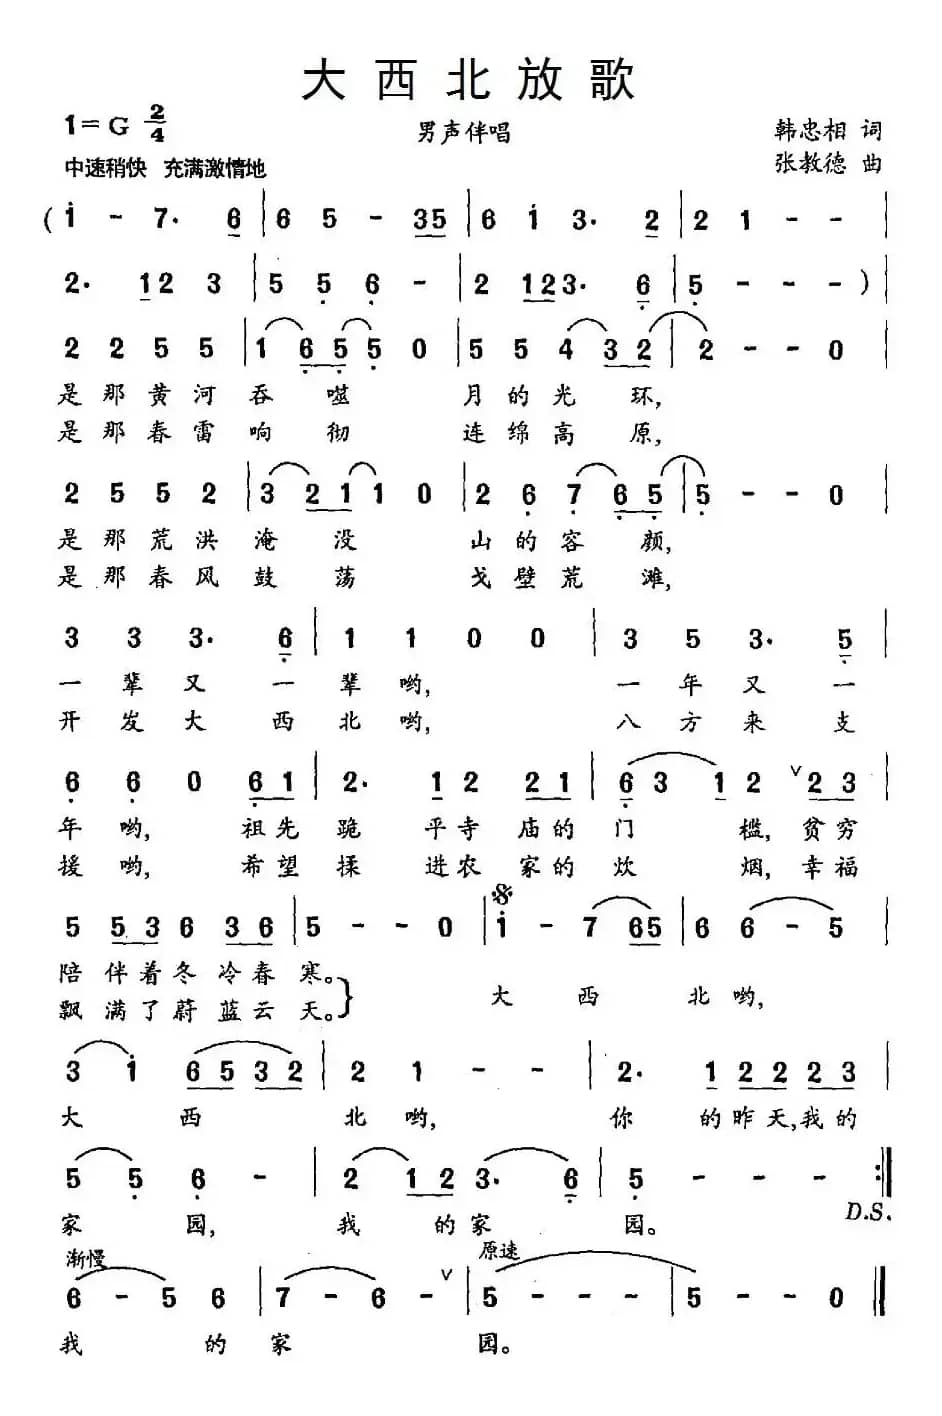 大西北放歌
1=G 2/4
男声伴唱
韩忠相 词
中速稍快 充满激情地
张教德 曲
(i - 7. 6 | 6 5 - 35 | 6 i 3. 2 | 2 1 - - |
2. 12 3 | 5 5 6 - | 2 123. 6 | 5 - - - ) |
2 2 5 5 | 1 6 5 5 0 | 5 5 4 3 2 | 2 - - 0 |
是那黄河吞噬 月的光环,
是那春雷响彻 连绵高原,
2 5 5 2 | 3 2 1 1 0 | 2 6 7 6 5 | 5 - - 0 |
是那荒洪淹没 山的容颜,
是那春风鼓荡 戈壁荒滩,
3 3 3. 6 | 1 1 0 0 | 3 5 3. 5 |
一辈又一辈哟, 一年又一
开发大西北哟, 八方来支
6 6 0 6 1 | 2. 1 2 2 1 | 6 3 1 2 ∨ 2 3 |
年哟, 祖先跪平寺庙的门槛, 贫穷
援哟, 希望揉进农家的炊烟, 幸福
5 5 3 6 3 6 | 5 - - 0 | i - 7 65 | 6 6 - 5 |
陪伴着冬冷春寒。
飘满了蔚蓝云天。
大西北哟,
3 i 6 5 3 2 | 2 1 - - | 2. 1 2 2 2 3 |
大西北哟, 你的昨天,我的
5 5 6 - | 2 1 2 3. 6 | 5 - - - :|
D.S.
家园, 我的家园。
渐慢 原速
6 - 5 6 | 7 - 6 - ∨ | 5 - - - | 5 - - 0 ||
我的家园。